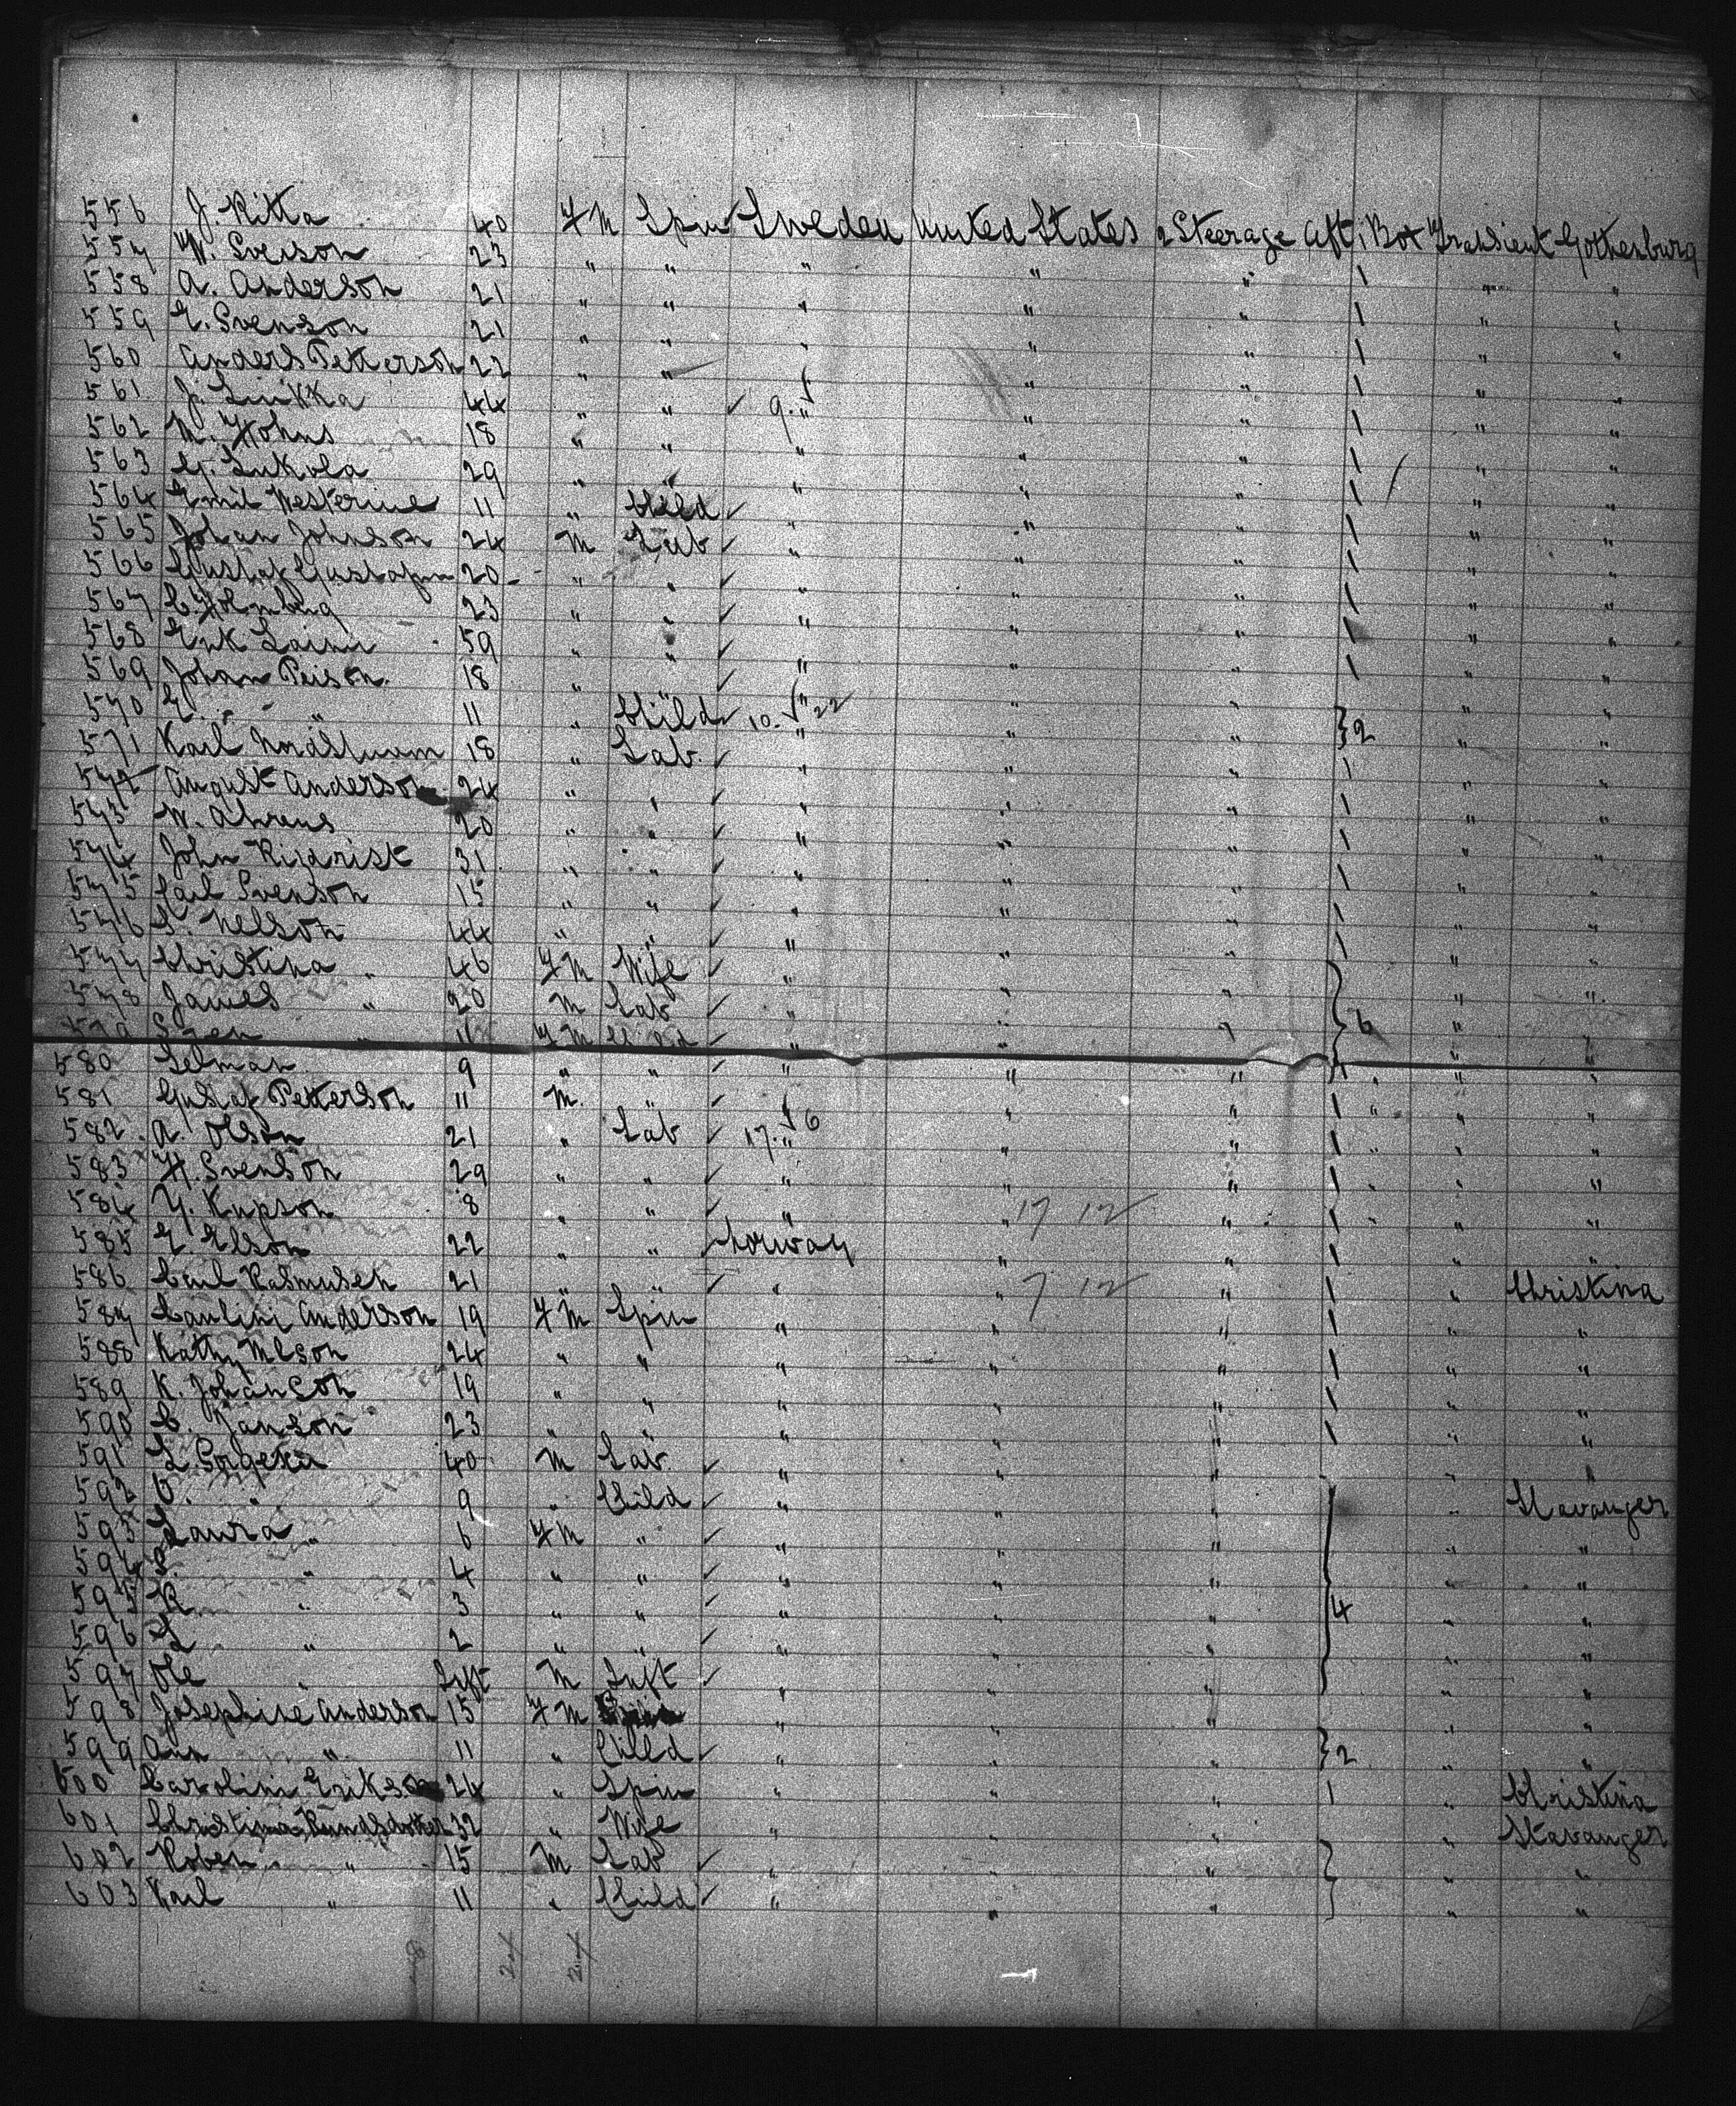 556 J. Kitta 40 FM Spin Sweden United States 2 Steerage Aft 1 Box Transient Gothenburg
557 W. Svenson 23 " " " " " 1 " "
558 A. Anderson 21 " " " " " 1 " "
559 E. Svenson 21 " " " " " 1 " "
560 Anders Petterson 22 " " " " " 1 " "
561 J. 44 " " 9. " " " 1 " "
562 M. Hohns 18 " " " " " 1 " "
563 G. Lukola 29 " " " " " 1 " "
564 Emil 11 " Child " " " 1 " "
565 Johan Johnson 24 M Lab " " " 1 " "
566 Gustaf Gustafson 20 " " " " " 1 " "
567 C. Holmberg 23 " " " " " 1 " "
568 Erik 59 " " " " " 1 " "
569 Johan Peison 18 " " " " " 1 " "
570 E. " 11 " Child 10. " 22 " " } 2 " "
571 Karl Nordstrum 18 " Lab. " " " 1 " "
572 August Anderson 24 " " " " " 1 " "
573 W. Ahrens 20 " " " " " 1 " "
574 John 31 " " " " " 1 " "
575 Carl Svenson 15 " " " " " 1 " "
576 S. Nelson 44 " " " " " 1 " "
577 Christina " 46 FM Wife " " " " "
578 James " 20 M Lab " " " } 6 " "
579 " 11 FM Child " " " " "
580 Selman 9 " " " " " 1 " "
581 Gustaf Petterson 11 M. " " " " 1 " "
582 A. Olson 21 " Lab 17. " 6 " " 1 " "
583 H. Svenson 29 " " " " " 1 " "
584 Y. Kupson 8 " " " " 17 12 " 1 " "
585 E. Elson 22 " " Norway " " 1 " "
586 Carl Rasmusen 21 " " " 7 12 " 1 " Christina
587 Caulini Anderson 19 FM Spin " " " 1 " "
588 Kathy 24 " " " " " 1 " "
589 K. Johanson 19 " " " " " 1 " "
590 C. Janson 23 " " " " " 1 " "
591 L 40 M Lab. " " " " "
592 O. " 9 " Child " " " " Stavanger
593 Laura " 6 FM " " " " " "
594 S. " 4 " " " " " " "
595 K. " 3 " " " " " } 4 " "
596 L " 2 " " " " " " "
597 Ole " Inft M Inft " " " " "
598 Josephine Anderson 15 FM " " " " "
599 Ann " 11 " Child " " " } 2 " "
600 Carolini Erikson 24 " Spin " " " 1 " Christina
601 Christina 32 " Wife " " " " Stavanger
602 Roben " 15 M Lab " " " " "
603 Karl " 11 " Child " " " " "